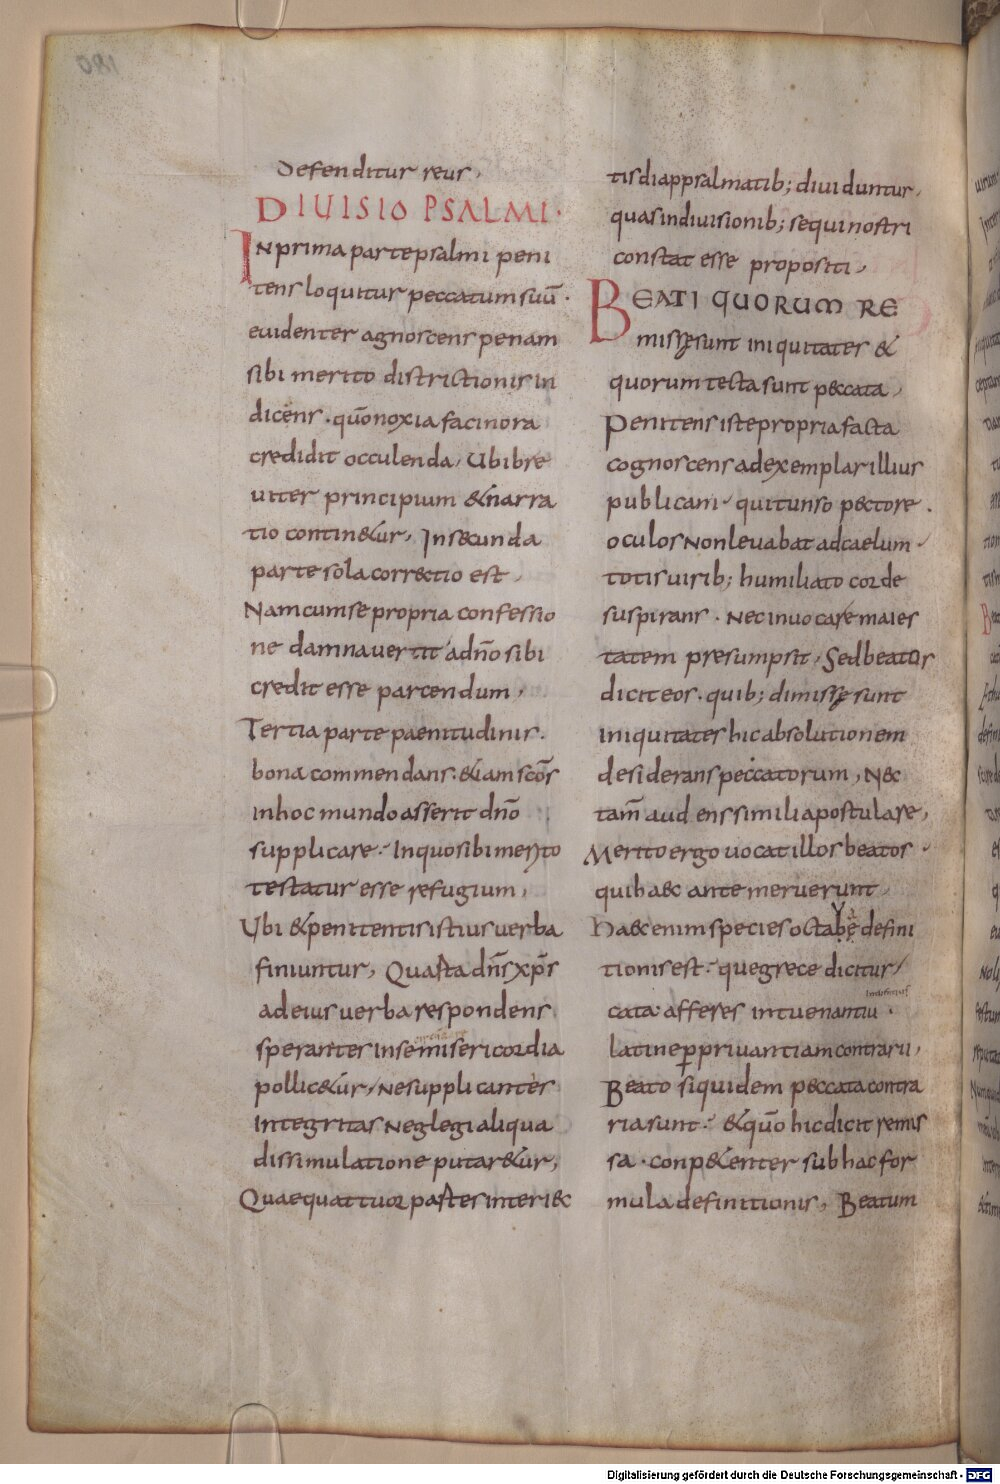 defenditur reus,
DIUISIO PSALMI·
IN prima parte psalmi peni
tens loquitur peccatum suū·
euidenter agnoscens penam
sibi merito districtionis in
dicens· quō noxia facinora
credidit occulenda, Ubi bre
uiter principium & narra
tio contin&ur, In secunda
parte sola corr&ctio est,
Nam cum se propria confessio
ne damnauertit adño sibi
credit esse parcendum,
Tertia parte paenitudinis·
bona commendans· &iam scōs
in hoc mundo asserit dño
supplicare· In quo sibi merito
testatur esse refugium,
Ubi & penitentis istius uerba
finiuntur, Quarta dñs xp̄s
ad eius uerba respondens
sperantes in se misericordia
pollic&ur, Ne supplicantes
Integritas neglegi aliqua
dissimulatione putar&ur,
Quae quattuor partes interi&c
tis diappsalmatib; diuiduntur,
quas in diuisionib; sequi nostri
constat esse propositi,
BEATI QUORUM RE
missę sunt iniquitates &
quorum tecta sunt p&ccata,
Penitens iste propria facta
cognoscens ad exemplar illius
publicani· qui tunso p&ctore·
oculos non leuabat ad caelum·
totis uisib; humiliato corde
suspirans· nec inuocare maies
tatem presumpsit, Sed beatos
dicit eos· quib; dimissę sunt
iniquitates hic absolutionem
desiderans peccatorum, N&c
tam̄ audens similia postulare,
Merito ergo uocat illos beatos·
qui ha&c ante meruerunt,
ha&c enim species octabę defini
tionis est· que grece dicitur
cata afferes intuenantiu·
latine p̱ priuantiam contrarii,
Beato siquidem p&ccata contra
ria sunt· & quō hic dicit remis
sa· conp&enter sub hac for
mula definitionis, Beatum
Digitalisierung gefördert durch die Deutsche Forschungsgemeinschaft - DFG